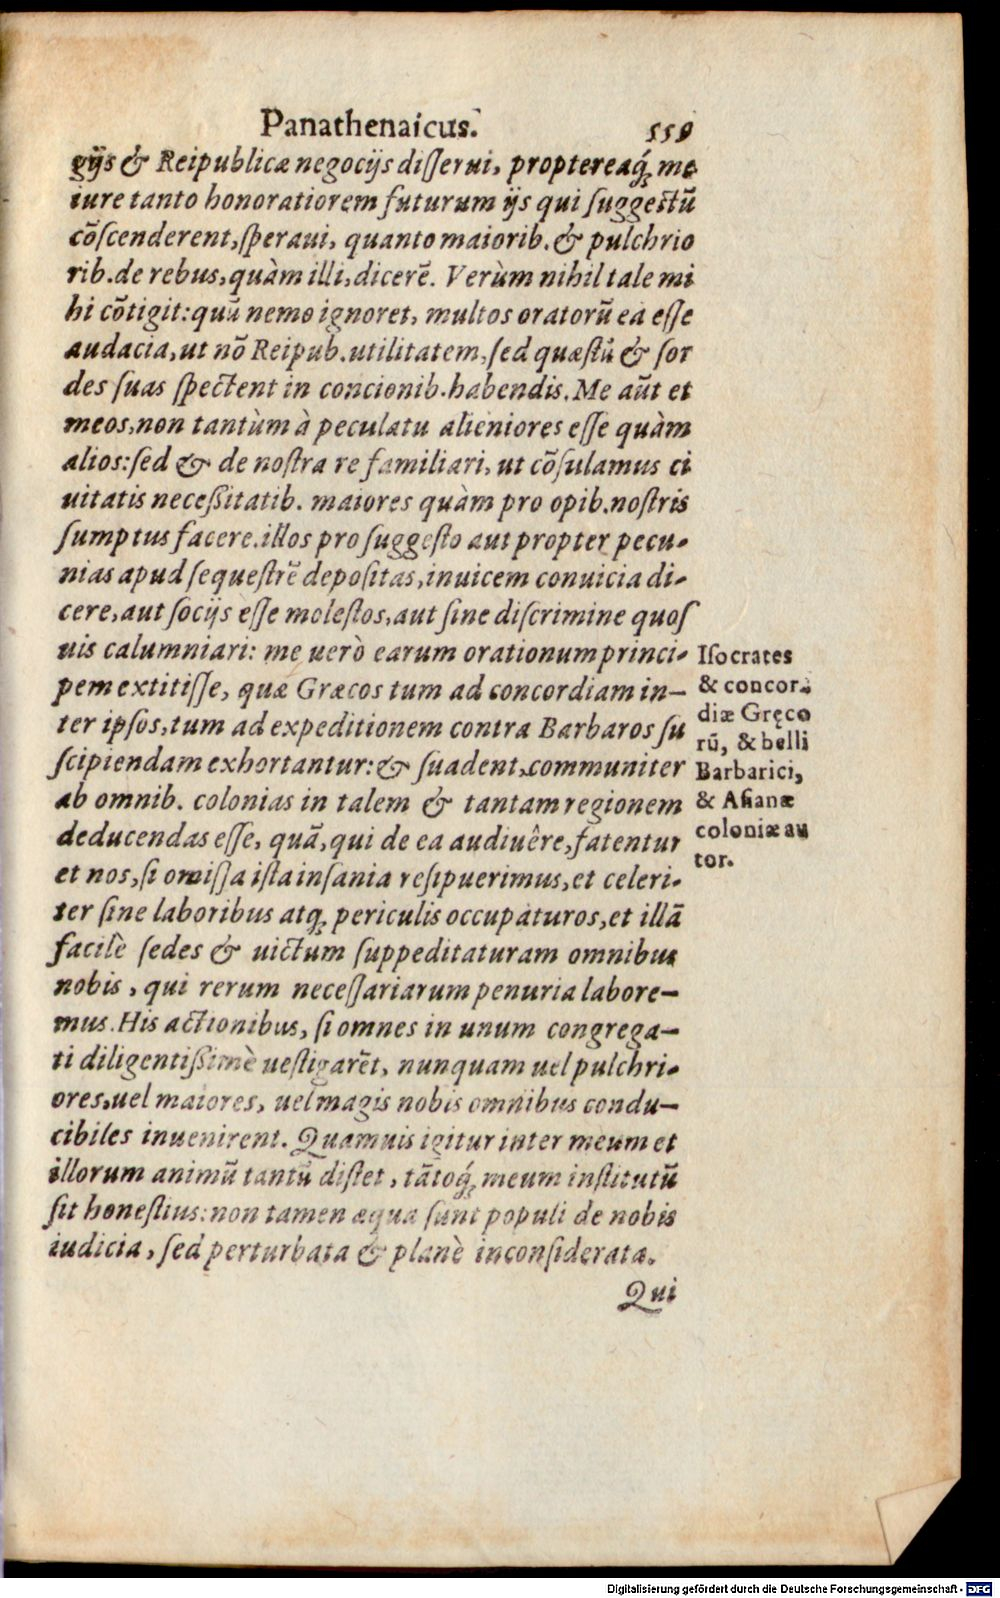 Panathenaicus. 559
gijs & Reipublicæ negocijs disserui, proptereaq́; me
iure tanto honoratiorem futurum ijs qui suggestū
cōscenderent, speraui, quanto maiorib. & pulchrio
rib. de rebus, quàm illi, dicerē. Verùm nihil tale mi
hi cōtigit: quū nemo ignoret, multos oratorū ea esse
audacia, ut nō Reipub. utilitatem, sed quæstū & sor
des suas spectent in concionib. habendis. Me aūt et
meos, non tantùm à peculatu alieniores esse quàm
alios: sed & de nostra re familiari, ut cōsulamus ci
uitatis necessitatib. maiores quàm pro opib. nostris
sumptus facere. illos pro suggesto aut propter pecu-
nias apud sequestrē depositas, inuicem conuicia di-
cere, aut socijs esse molestos, aut sine discrimine quos
uis calumniari: me uerò earum orationum princi-
pem extitisse, quæ Græcos tum ad concordiam in-
ter ipsos, tum ad expeditionem contra Barbaros su
scipiendam exhortantur: & suadent, communiter
ab omnib. colonias in talem & tantam regionem
deducendas esse, quā, qui de ea audiuêre, fatentur
et nos, si omissa ista insania resipuerimus, et celeri-
ter sine laboribus atq; periculis occupaturos, et illā
facilè sedes & uictum suppeditaturam omnibus
nobis, qui rerum necessariarum penuria labore-
mus. His actionibus, si omnes in unum congrega-
ti diligentissimè uestigarēt, nunquam uel pulchri-
ores, uel maiores, uel magis nobis omnibus condu-
cibiles inuenirent. Quamuis igitur inter meum et
illorum animū tantū distet, tātoq́; meum institutū
sit honestius: non tamen æqua sunt populi de nobis
iudicia, sed perturbata & planè inconsiderata.
Qui
Isocrates
& concor-
diæ Gręco
rū, & belli
Barbarici,
& Asianæ
coloniæ au
tor.
Digitalisierung gefördert durch die Deutsche Forschungsgemeinschaft - DFG